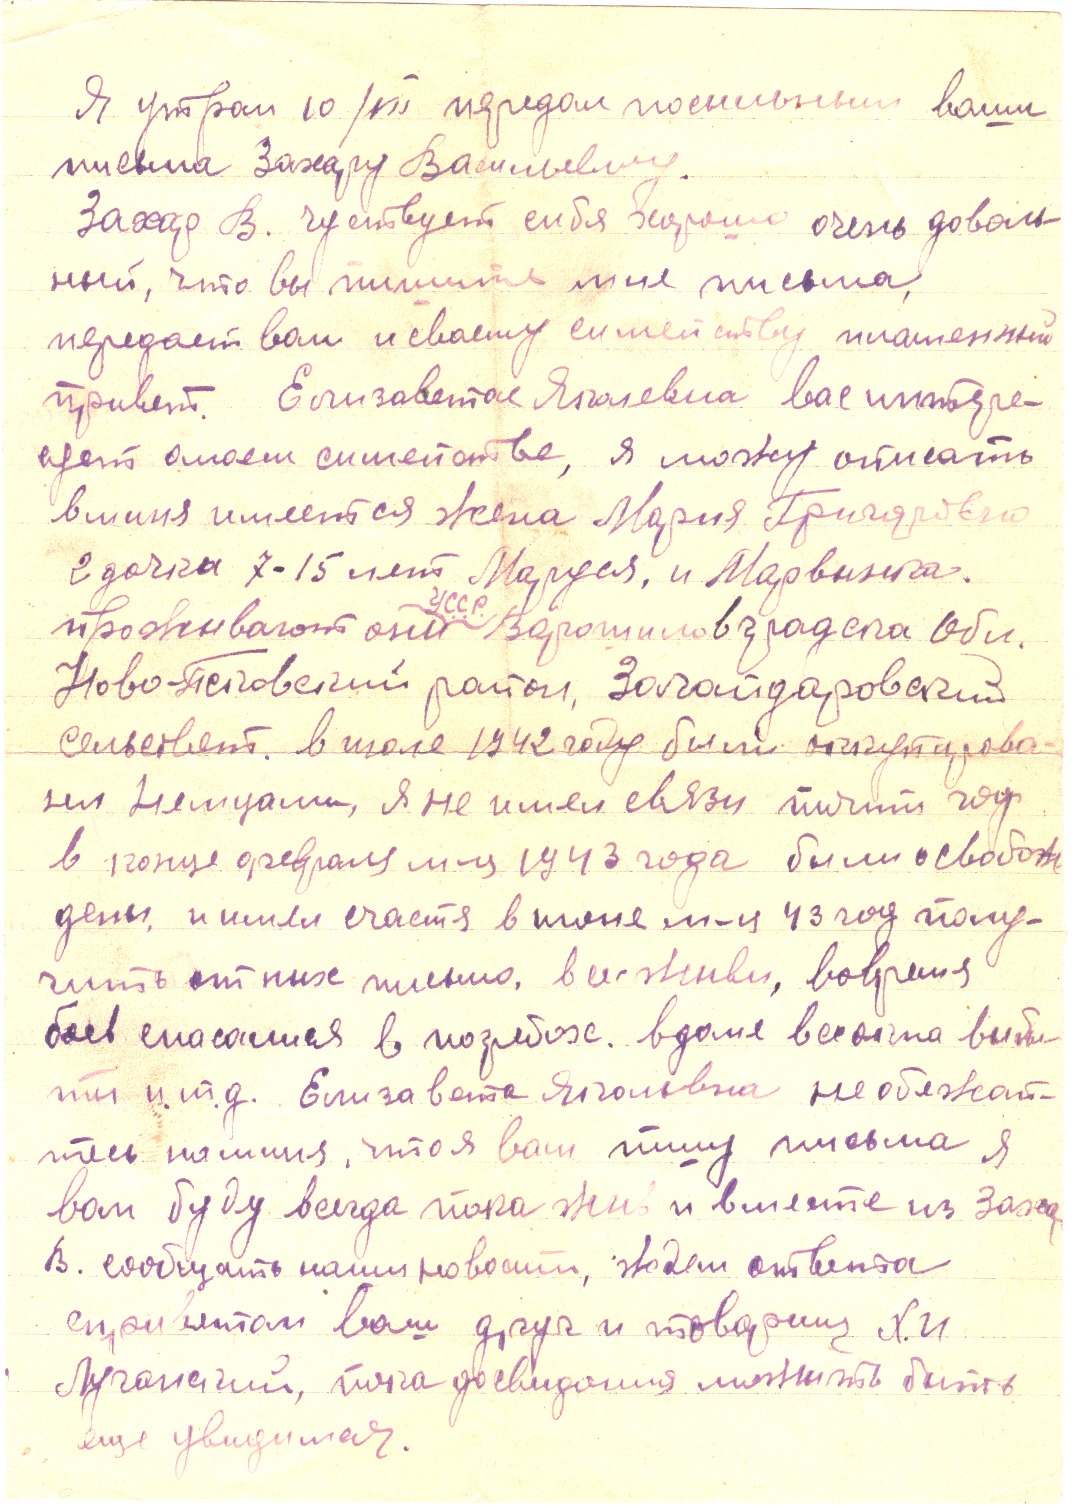 Я утром 10/VIII передал посыльным ваши
письма Захару Васильевичу.
Захар В. чуствует сибя хорошо очень доволь-
ный, что вы пишите мне письма,
передает вам и сваему симейству пламенный
привет. Елизавета Яковлевна вас интере-
сует о моем симействе, яможу описать
в миня имеется жена Мария Григоровно
2 дочки 7-15 лет Маруся, и
проживают они УССР Варошиловградска Обл.
Ново-Псковский район,
сельсовет. в июле 1942 году были оккупирова-
ны Немцами, я не имел связи почти год
в конце февраля м-ца 1943 года были освобож
дены, и имел счастя в июне м-ца 43 год полу-
чить от них письмо, все живы, вовремя
боев спасалися в погребах. в доме все окна выби-
ты и.т.д. Елизавета Яковлевна не обежай-
тесь на миня, что я вам пишу письма я
вам буду всегда пока жив и вместе из Захар
В. сообщать наши новости, ждем ответа
с приветом ваш друг и товарищ Х.И
Луганский, пока досвидания можить быть
еще увидимся.